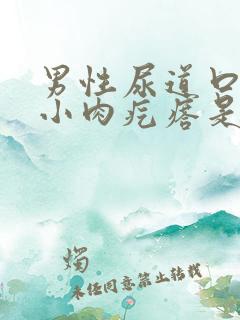 男性尿道口
小肉疙瘩是
烛
未经同意禁止转载